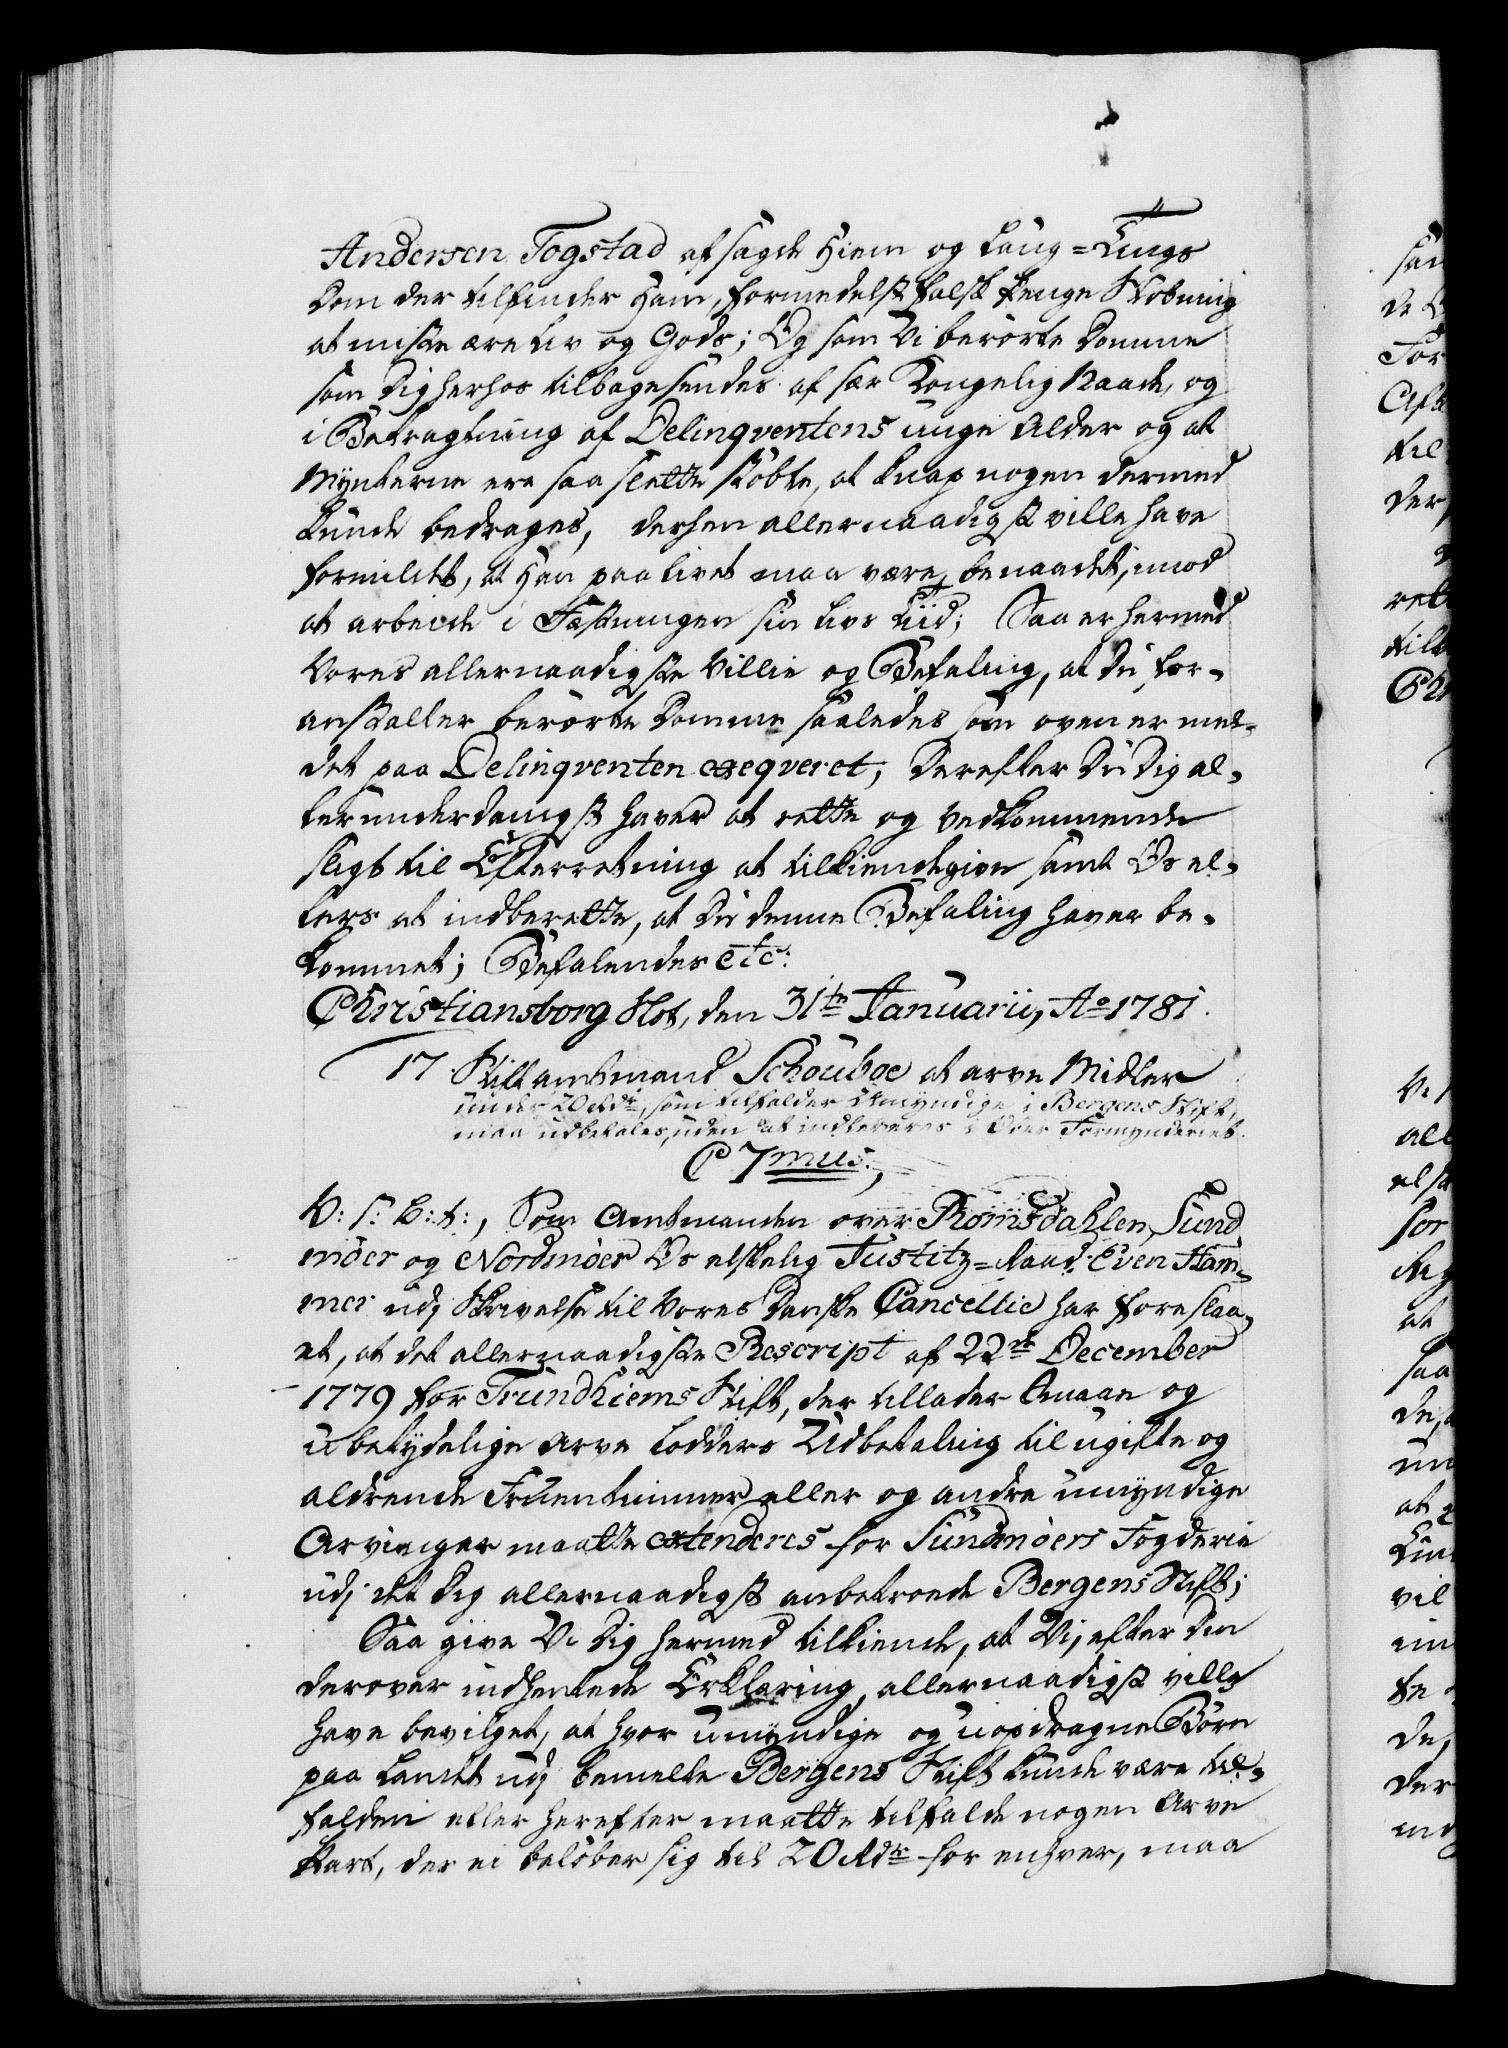 Andersen Togstad afsagde Hiem og Laug-Tings
Dom der tilfinder Ham, formedelst falsk Penge Støbning
at miste ære Liv og Gods; Og som Vi berørte Domme
som Dig herhos tilbagesendes af sær Kongelig Naade, og
i Betragtning af Delinqventens unge Alder og at
Mynterne ere saa slette støbte, at knap nogen dermed
kunde bedrages, derhen allernaadigst ville have
formildet, at Han paa livet maa være benaadet, mod
at arbeide i Fæstningen sin Livs Tiid; Saa er hermed
Vores allernaadigste Villie og Befaling, at Du for-
anstalter berørte Domme saaledes som oven er mel-
det paa Delinqventen exeqveret; Derefter Du Dig al-
lerunderdanigst haver at rette og Vedkommende
sligt til Efterretning at tilkiendegive samt Os el-
lers at indberette, at Du denne Befaling haver be-
kommet; Befalendes etc:
Christiansborg Slot, den 31te Januarii, Ao 1781.
17 Stiftamtmand Schouboe at arve Midler
under 20 Rdr, som tilfalder Umyndige i Bergens Stift,
maa udbetales, uden at indleveres i Over Formynderiet.
C 7mus.,
V: S: G: t:, Som Amtmanden over Romsdahlen, Sund
møer og Nordmøer Os elskelig Justitz-Raad Even Ham-
mer udj Skrivelse til Vores Danske Cancellie har foreslaa-
et, at det allernaadigste Rescript af 22de December
1779 for Trundhiems Stift, der tillader Smaae og
ubetydelige Arve Lodders Udbetaling til ugifte og
aldrende Fruentimmer eller og andre umyndige
Arvinger maatte extenderes for Sundmøers Fogderie
udj det Dig allernaadigst anbetroede Bergens Stift;
Saa give Vi Dig hermed tilkiende, at Vi, efter Din
derover indhentede Erklæring, allernaadigst ville
have bevilget, at hvor umyndige og uopdragne Børn
paa Landet udj bemelte Bergens Stift kunde være til-
falden eller herefter maatte tilfalde nogen Arve
Part, der ei beløber sig til 20 Rdr for enhver, maa